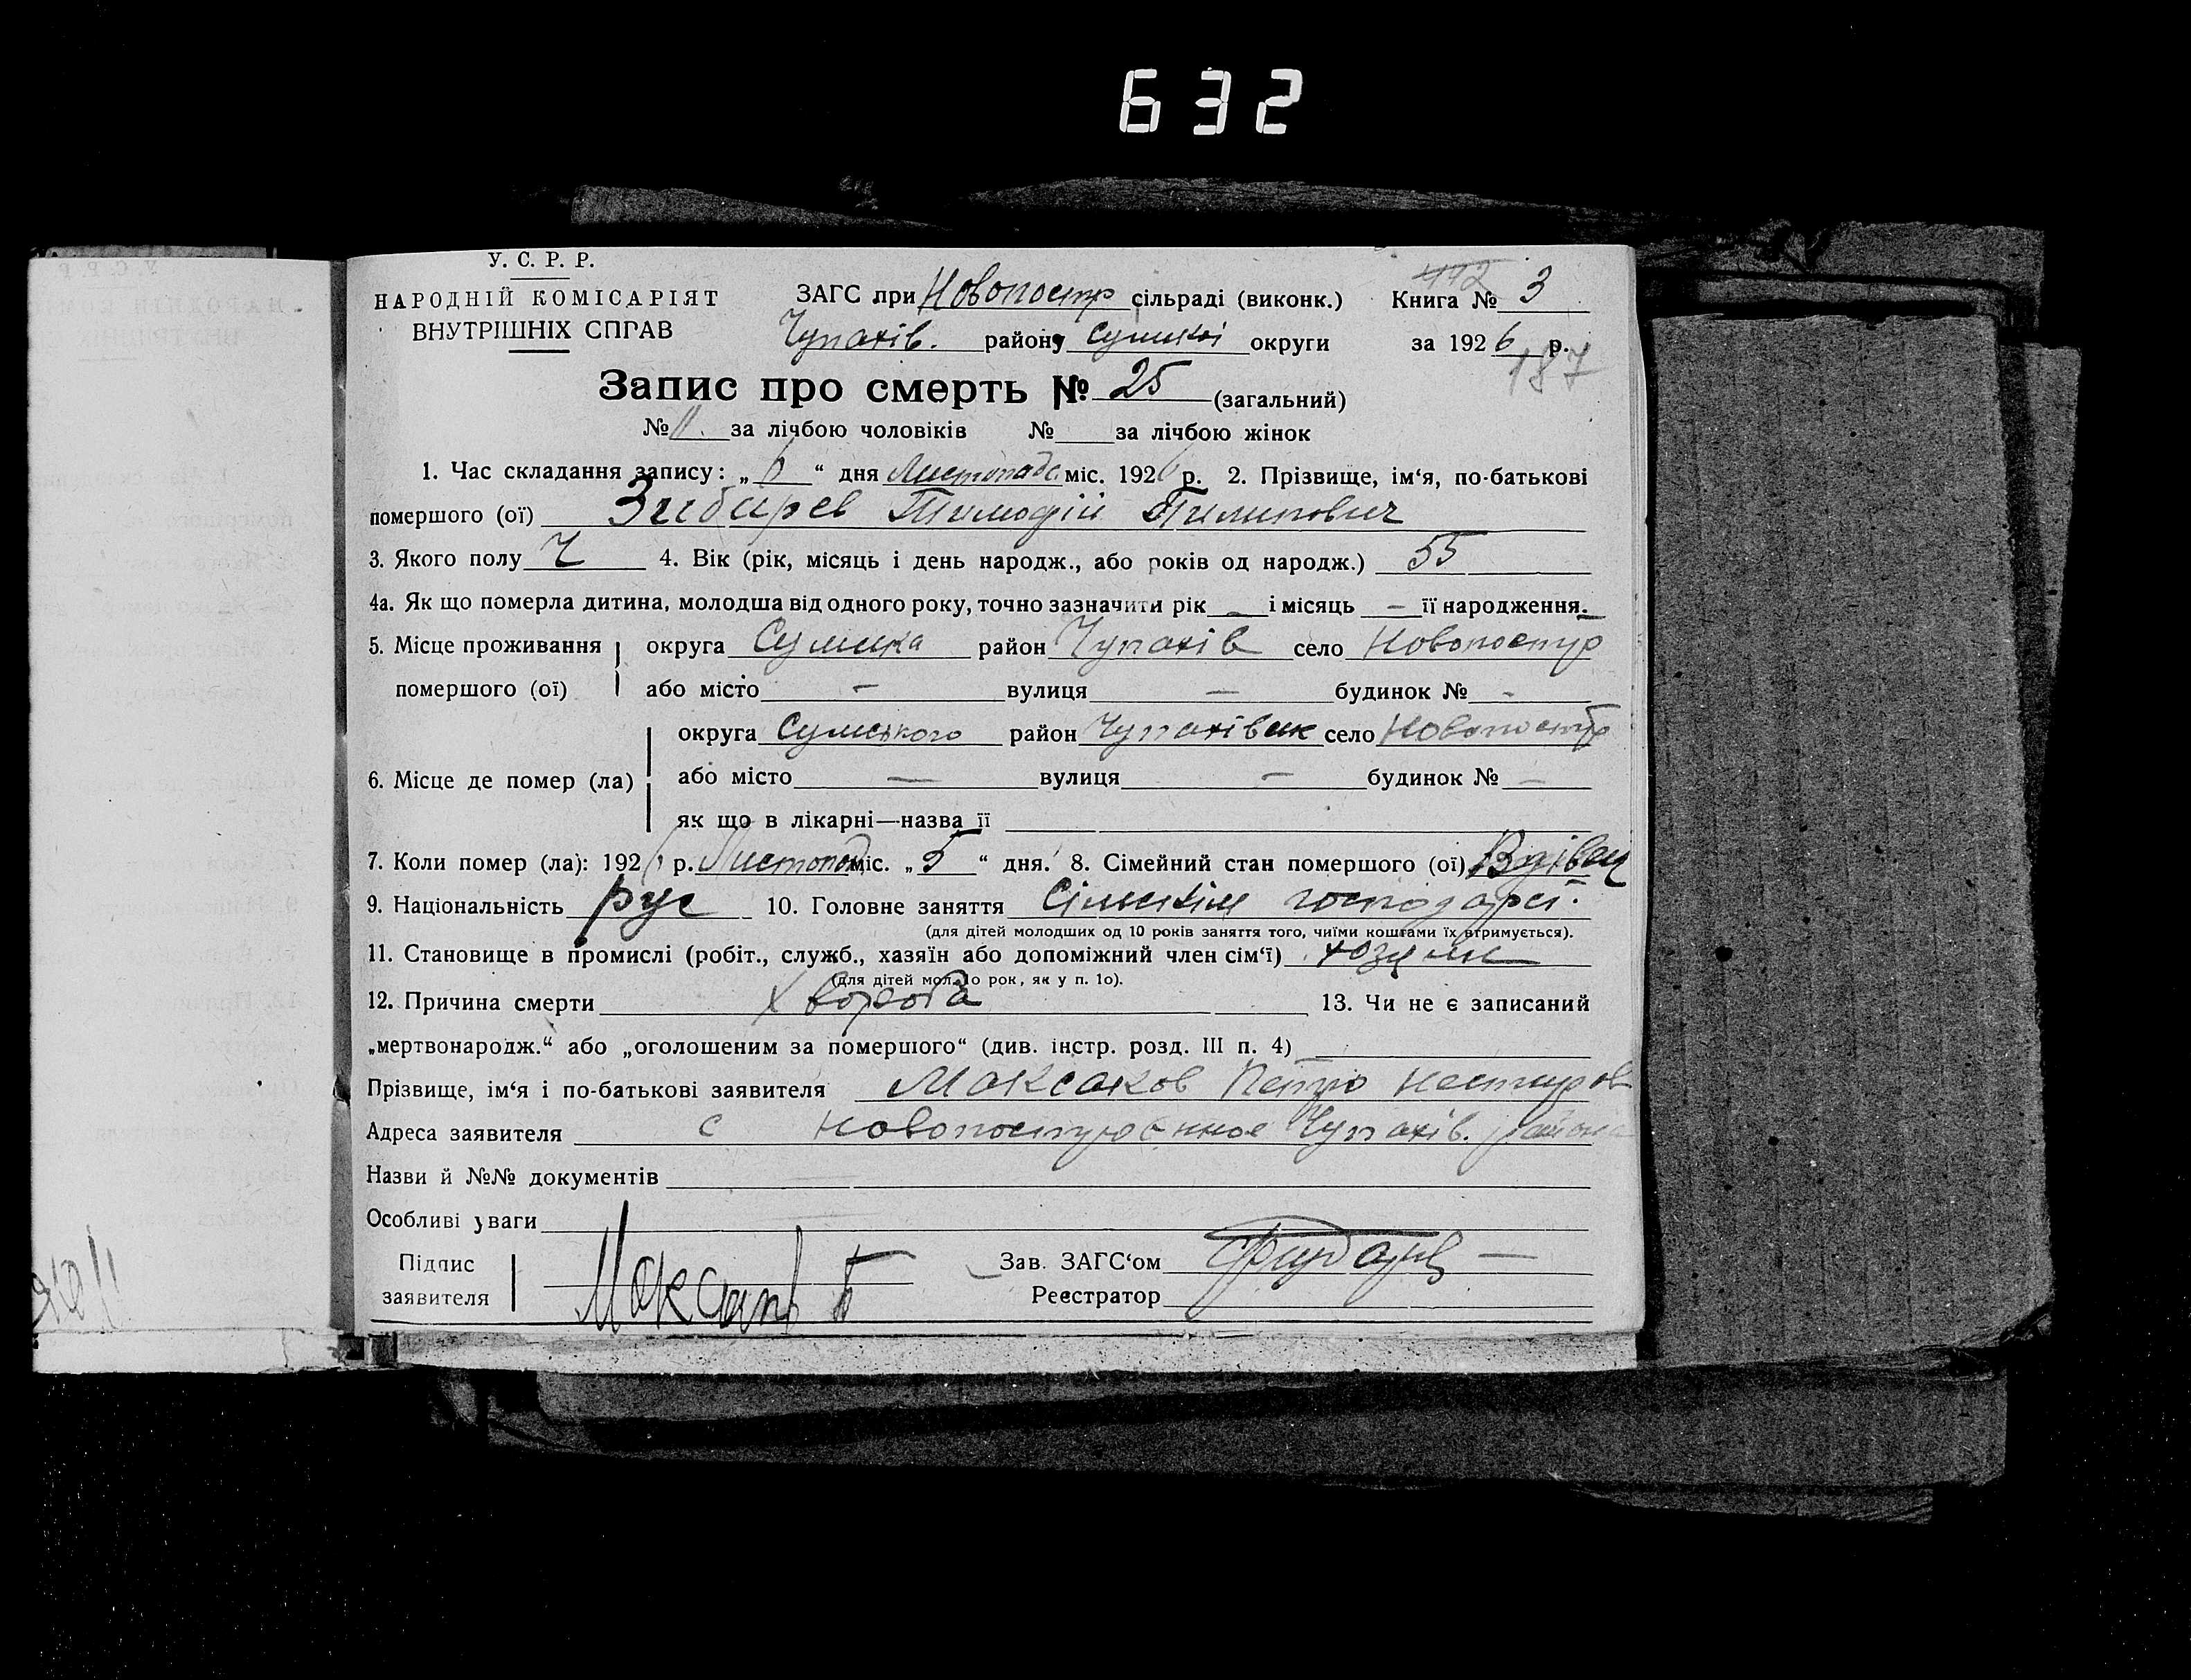 632
У. С. Р. Р.
НАРОДНІЙ КОМІСАРІЯТ
ВНУТРІШНІХ СПРАВ
ЗАГС при Новопостр сільраді (виконк.)
Чупахів. району Сумської округи
442
Книга № 3
за 1926 р.
187
Запис про смерть № 25 (загальний)
№ 11. за лічбою чоловіків № за лічбою жінок
1. Час складання запису: „6“ дня Листопада міс. 1926 р. 2. Прізвище, ім‘я, по-батькові
помершого (ої) Зибарев Тимофій Пилипович
3. Якого полу Ч 4. Вік (рік, місяць і день народж., або років од народж.) 55
4а. Як що померла дитина, молодша від одного року, точно зазначити рік — і місяць — її народження.
5. Місце проживання округа Сумська район Чупахів село Новопостр
помершого (ої) або місто — вулиця — будинок № -
округа Сумського район Чупахівськ село Новопостр
6. Місце де помер (ла) або місто — вулиця — будинок № —
як що в лікарні—назва її
7. Коли помер (ла): 1926 р. Листопад міс. „5“ дня. 8. Сімейний стан помершого (ої) Вдівец
9. Національність рус 10. Головне заняття Сільским господарст.
(для дітей молодших од 10 років заняття того, чиїми коштами їх втримується).
11. Становище в промислі (робіт., служб., хазяїн або допоміжний член сім‘ї)
(для дітей мол. 1о рок, як у п. 1о).
12. Причина смерти Хвороба 13. Чи не є записаний
„мертвонародж.“ або „оголошеним за помершого“ (див. інстр. розд. III п. 4)
Прізвище, ім‘я і по-батькові заявителя Максаков Петро
Адреса заявителя с Чупахів. района
Назви й №№ документів
Особливі уваги
Підпис
заявителя
Зав. ЗАГС‘ом
Реєстратор